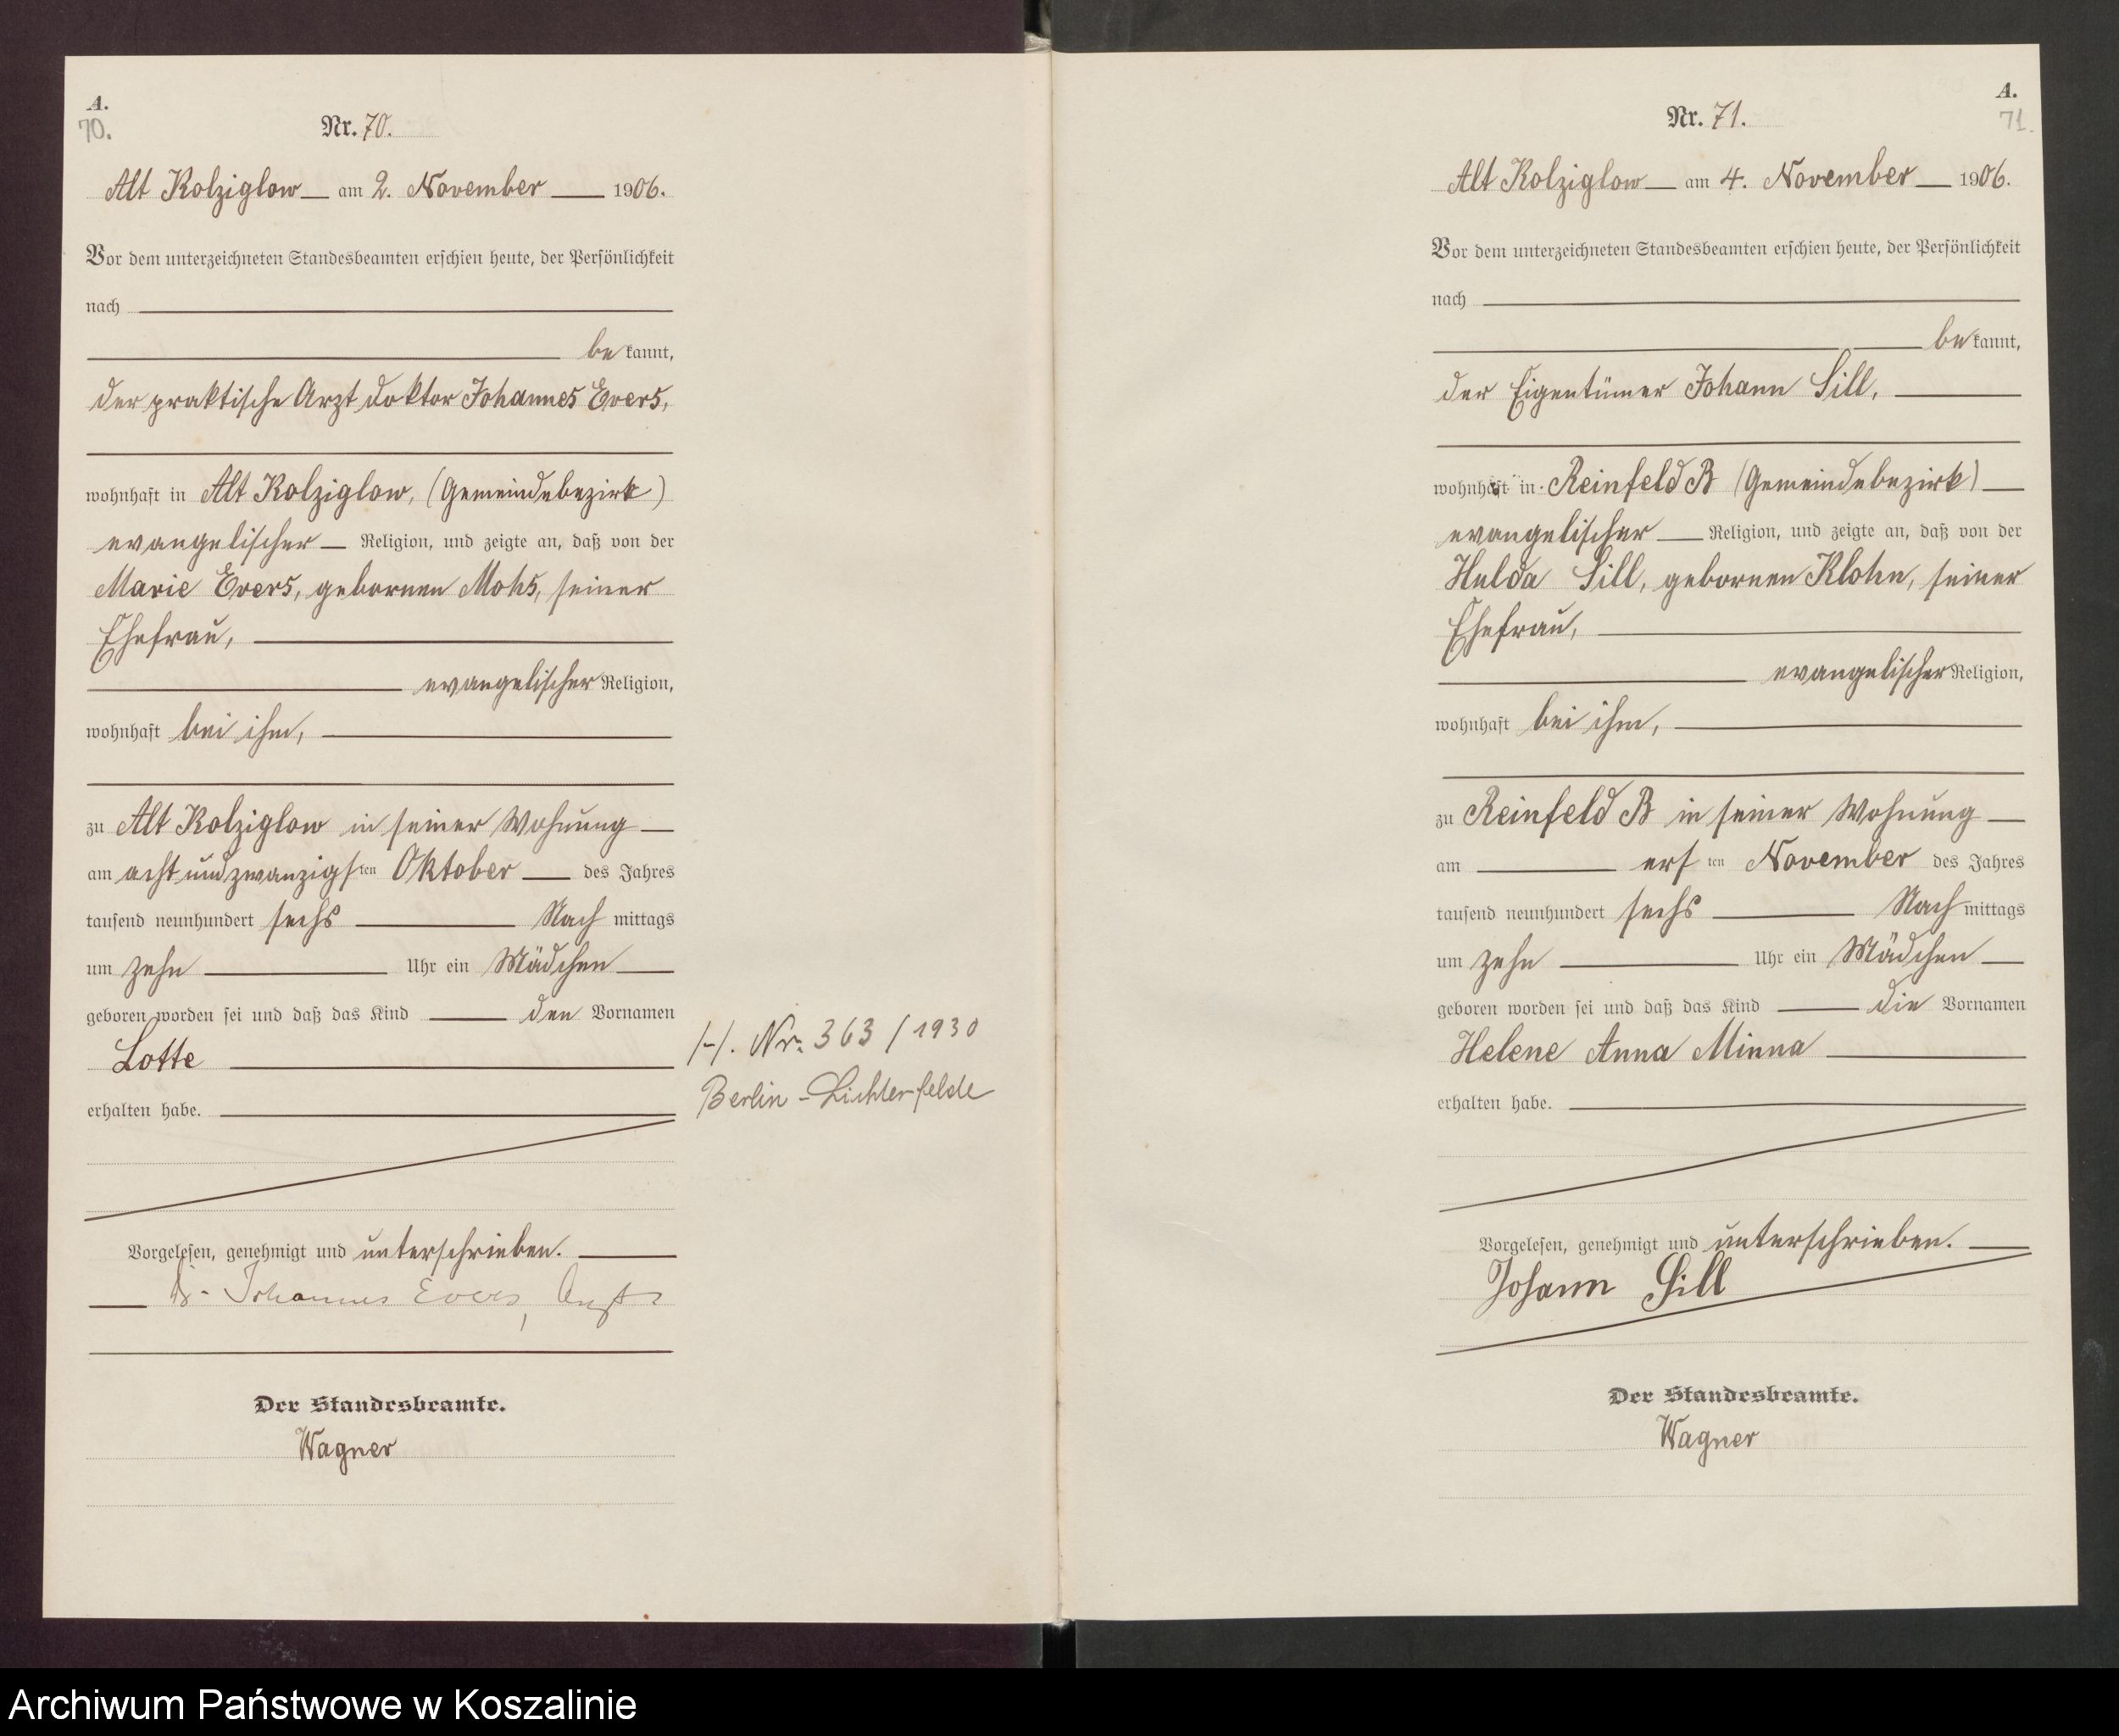 A.
70.
Nr. 70.
Alt Kolziglow am 2. November 1906.
Vor dem unterzeichneten Standesbeamten erschien heute, der Persönlichkeit
nach
be kannt,
der praktische Arzt doktor Johannes Evers,
wohnhaft in Alt Kolziglow, (Gemeindebezirk)
evangelischer Religion, und zeigte an, daß von der
Marie Evers, gebornen Mohs, seiner
Ehefrau,
evangelischer Religion,
wohnhaft bei ihm,
zu Alt Kolziglow in seiner Wohnung
am acht und zwanzigsten Oktober des Jahres
tausend neunhundert sechs Nach mittags
um zehn Uhr ein Mädchen
geboren worden sei und daß das Kind den Vornamen
Lotte
erhalten habe.
H. Nr. 363/1930
Berlin-Lichterfelde
Vorgelesen, genehmigt und unterschrieben.
Dr. Johannes Evers, Arzt
Der Standesbeamte.
Wagner
A.
71.
Nr. 71.
Alt Kolziglow am 4. November 1906.
Vor dem unterzeichneten Standesbeamten erschien heute, der Persönlichkeit
nach
be kannt,
der Eigentümer Johann Sill,
wohnhaft in Reinfeld B (Gemeindebezirk)
evangelischer Religion, und zeigte an, daß von der
Hulda Sill, gebornen Klohn, seiner
Ehefrau,
evangelischer Religion,
wohnhaft bei ihm,
zu Reinfeld B in seiner Wohnung
am ersten November des Jahres
tausend neunhundert sechs Nach mittags
um zehn Uhr ein Mädchen
geboren worden sei und daß das Kind die Vornamen
Helene Anna Minna
erhalten habe.
Vorgelesen, genehmigt und unterschrieben.
Johann Sill
Der Standesbeamte.
Wagner
Archiwum Państwowe w Koszalinie